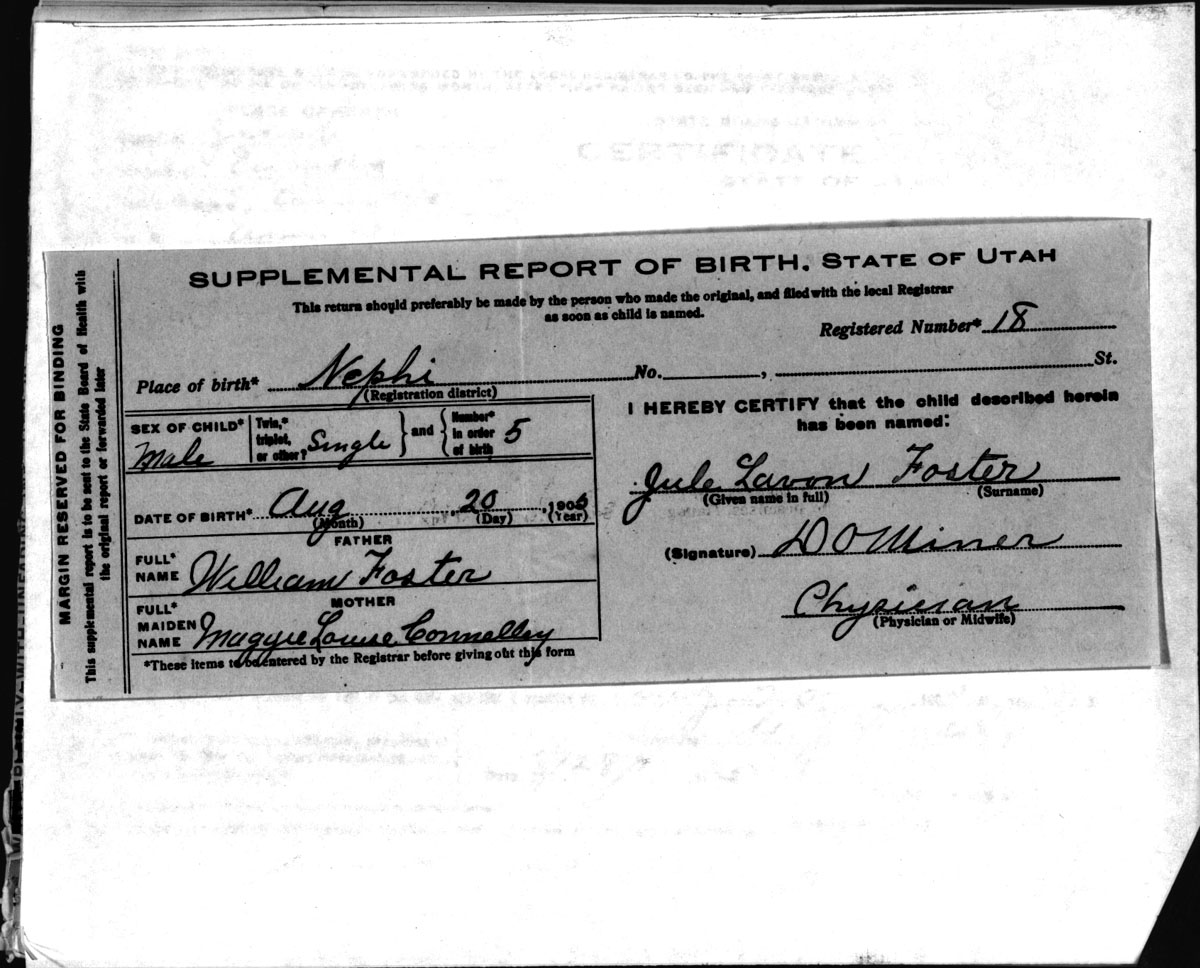 SUPPLEMENTAL REPORT OF BIRTH. STATE OF UTAH
This return should preferably be made by the person who made the original, and filed with the local Registrar
as soon as child is named.
Registered Number* 18
Place of birth* Nephi No. , St.
(Registration district)
SEX OF CHILD* Male
Twin,* triplet, or other? Single } and { Number* in order of birth 5
DATE OF BIRTH* Aug 20, 1906
(Month) (Day) (Year)
FATHER
FULL* NAME William Foster
MOTHER
FULL* MAIDEN NAME Maggie Louise Connelley
*These items to be entered by the Registrar before giving out this form
I HEREBY CERTIFY that the child described herein
has been named:
Jule Lavon Foster
(Given name in full) (Surname)
(Signature) D O Miner
Physician
(Physician or Midwife)
MARGIN RESERVED FOR BINDING
This supplemental report is to be sent to the State Board of Health with
the original report or forwarded later